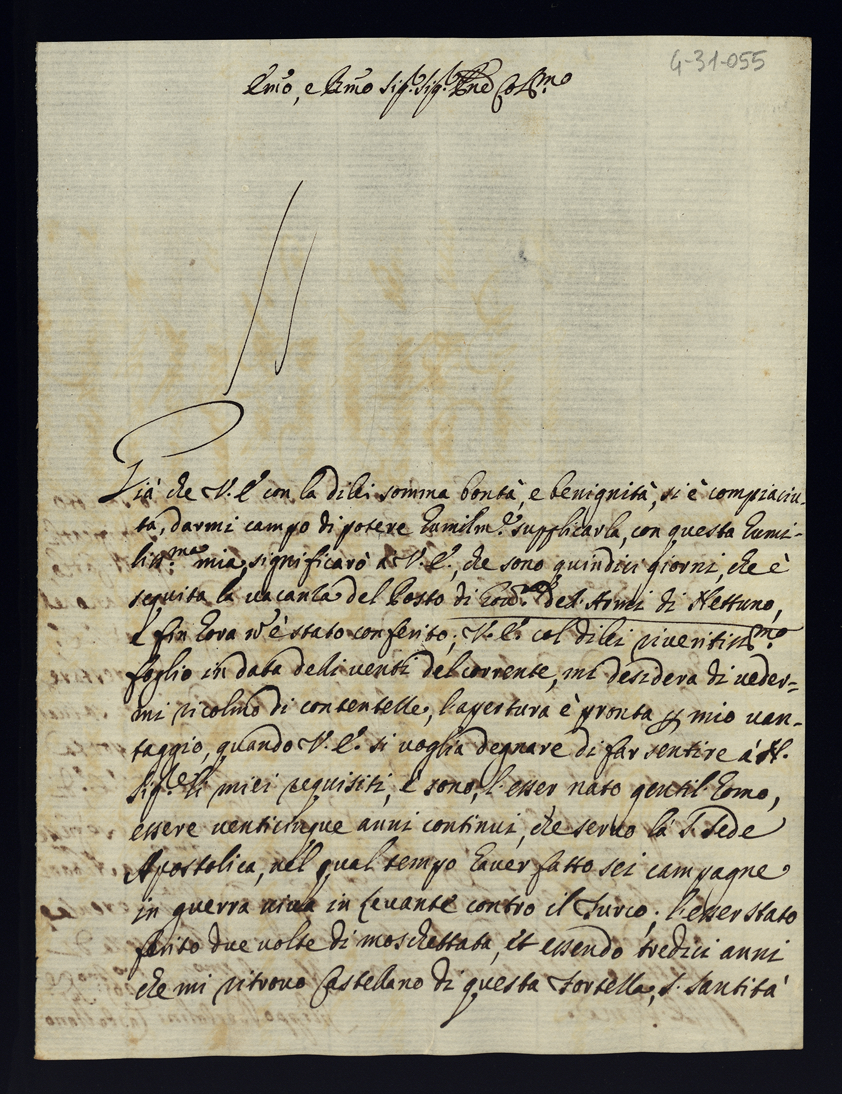 4-31-055
Em̃o, e Rm̃o Sig.r Sig.r Pne Col.mo
Già che V. E. con la di lei somma bontà, e benignità, si è compiaciu-
ta, darmi campo di potere humilm.e supplicarla, con questa humi-
liss.ma mia, significarò a V. E., che sono quindici giorni, che è
seguita la vacanza del Posto di Gov.re dell'Armi di Nettuno,
e fin hora nõ è stato conferito; V. E. col di lei riveritiss.mo
foglio in data delli venti del corrente, mi desidera di veder-
mi ricolmo di contentezze, l'apertura è pronta p mio van-
taggio, quando V. E. si voglia degnare di far sentire à N.
Sig.re li miei requisiti, e sono, l'esser nato gentil'homo,
essere venticinque anni continui, che servo la S. Sede
Apostolica, nel qual tempo haver fatto sei campagne
in guerra viva in Levante contro il Turco; l'esser stato
ferito due volte di moschettata, et essendo tredici anni
che mi ritrovo Castellano di questa Fortezza, S. Santità